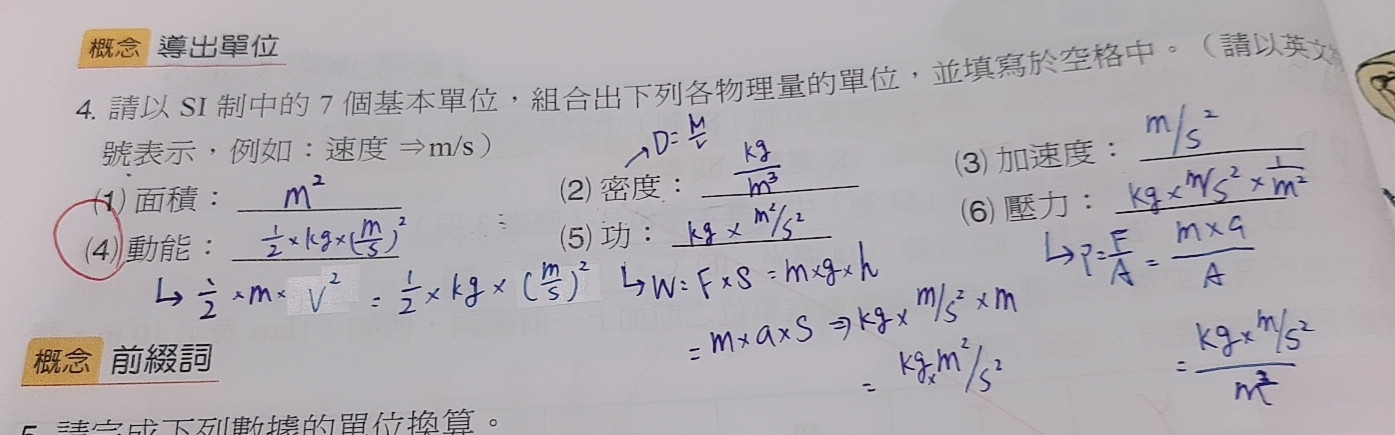 概念 導出單位
4. 請以 SI 制中的 7 個基本單位，組合出下列各物理量的單位，並填寫於空格中。（請以英文
號表示，例如：速度 ⇒m/s）
→D=M/V
(1) 面積： m²
(2) 密度： kg/m³
(3) 加速度： m/s²
(4) 動能： 1/2×kg×(m/s)²
(5) 功： kg×m²/s²
(6) 壓力： kg×m/s²×1/m²
↳ 1/2×m×V² = 1/2×kg×(m/s)²
↳W=F×S=m×g×h
=m×a×S⇒kg×m/s²×m
=kg×m²/s²
↳P=F/A=m×a/A
=kg×m/s²/m²
概念 前綴詞
5. 請完成下列數據的單位換算。